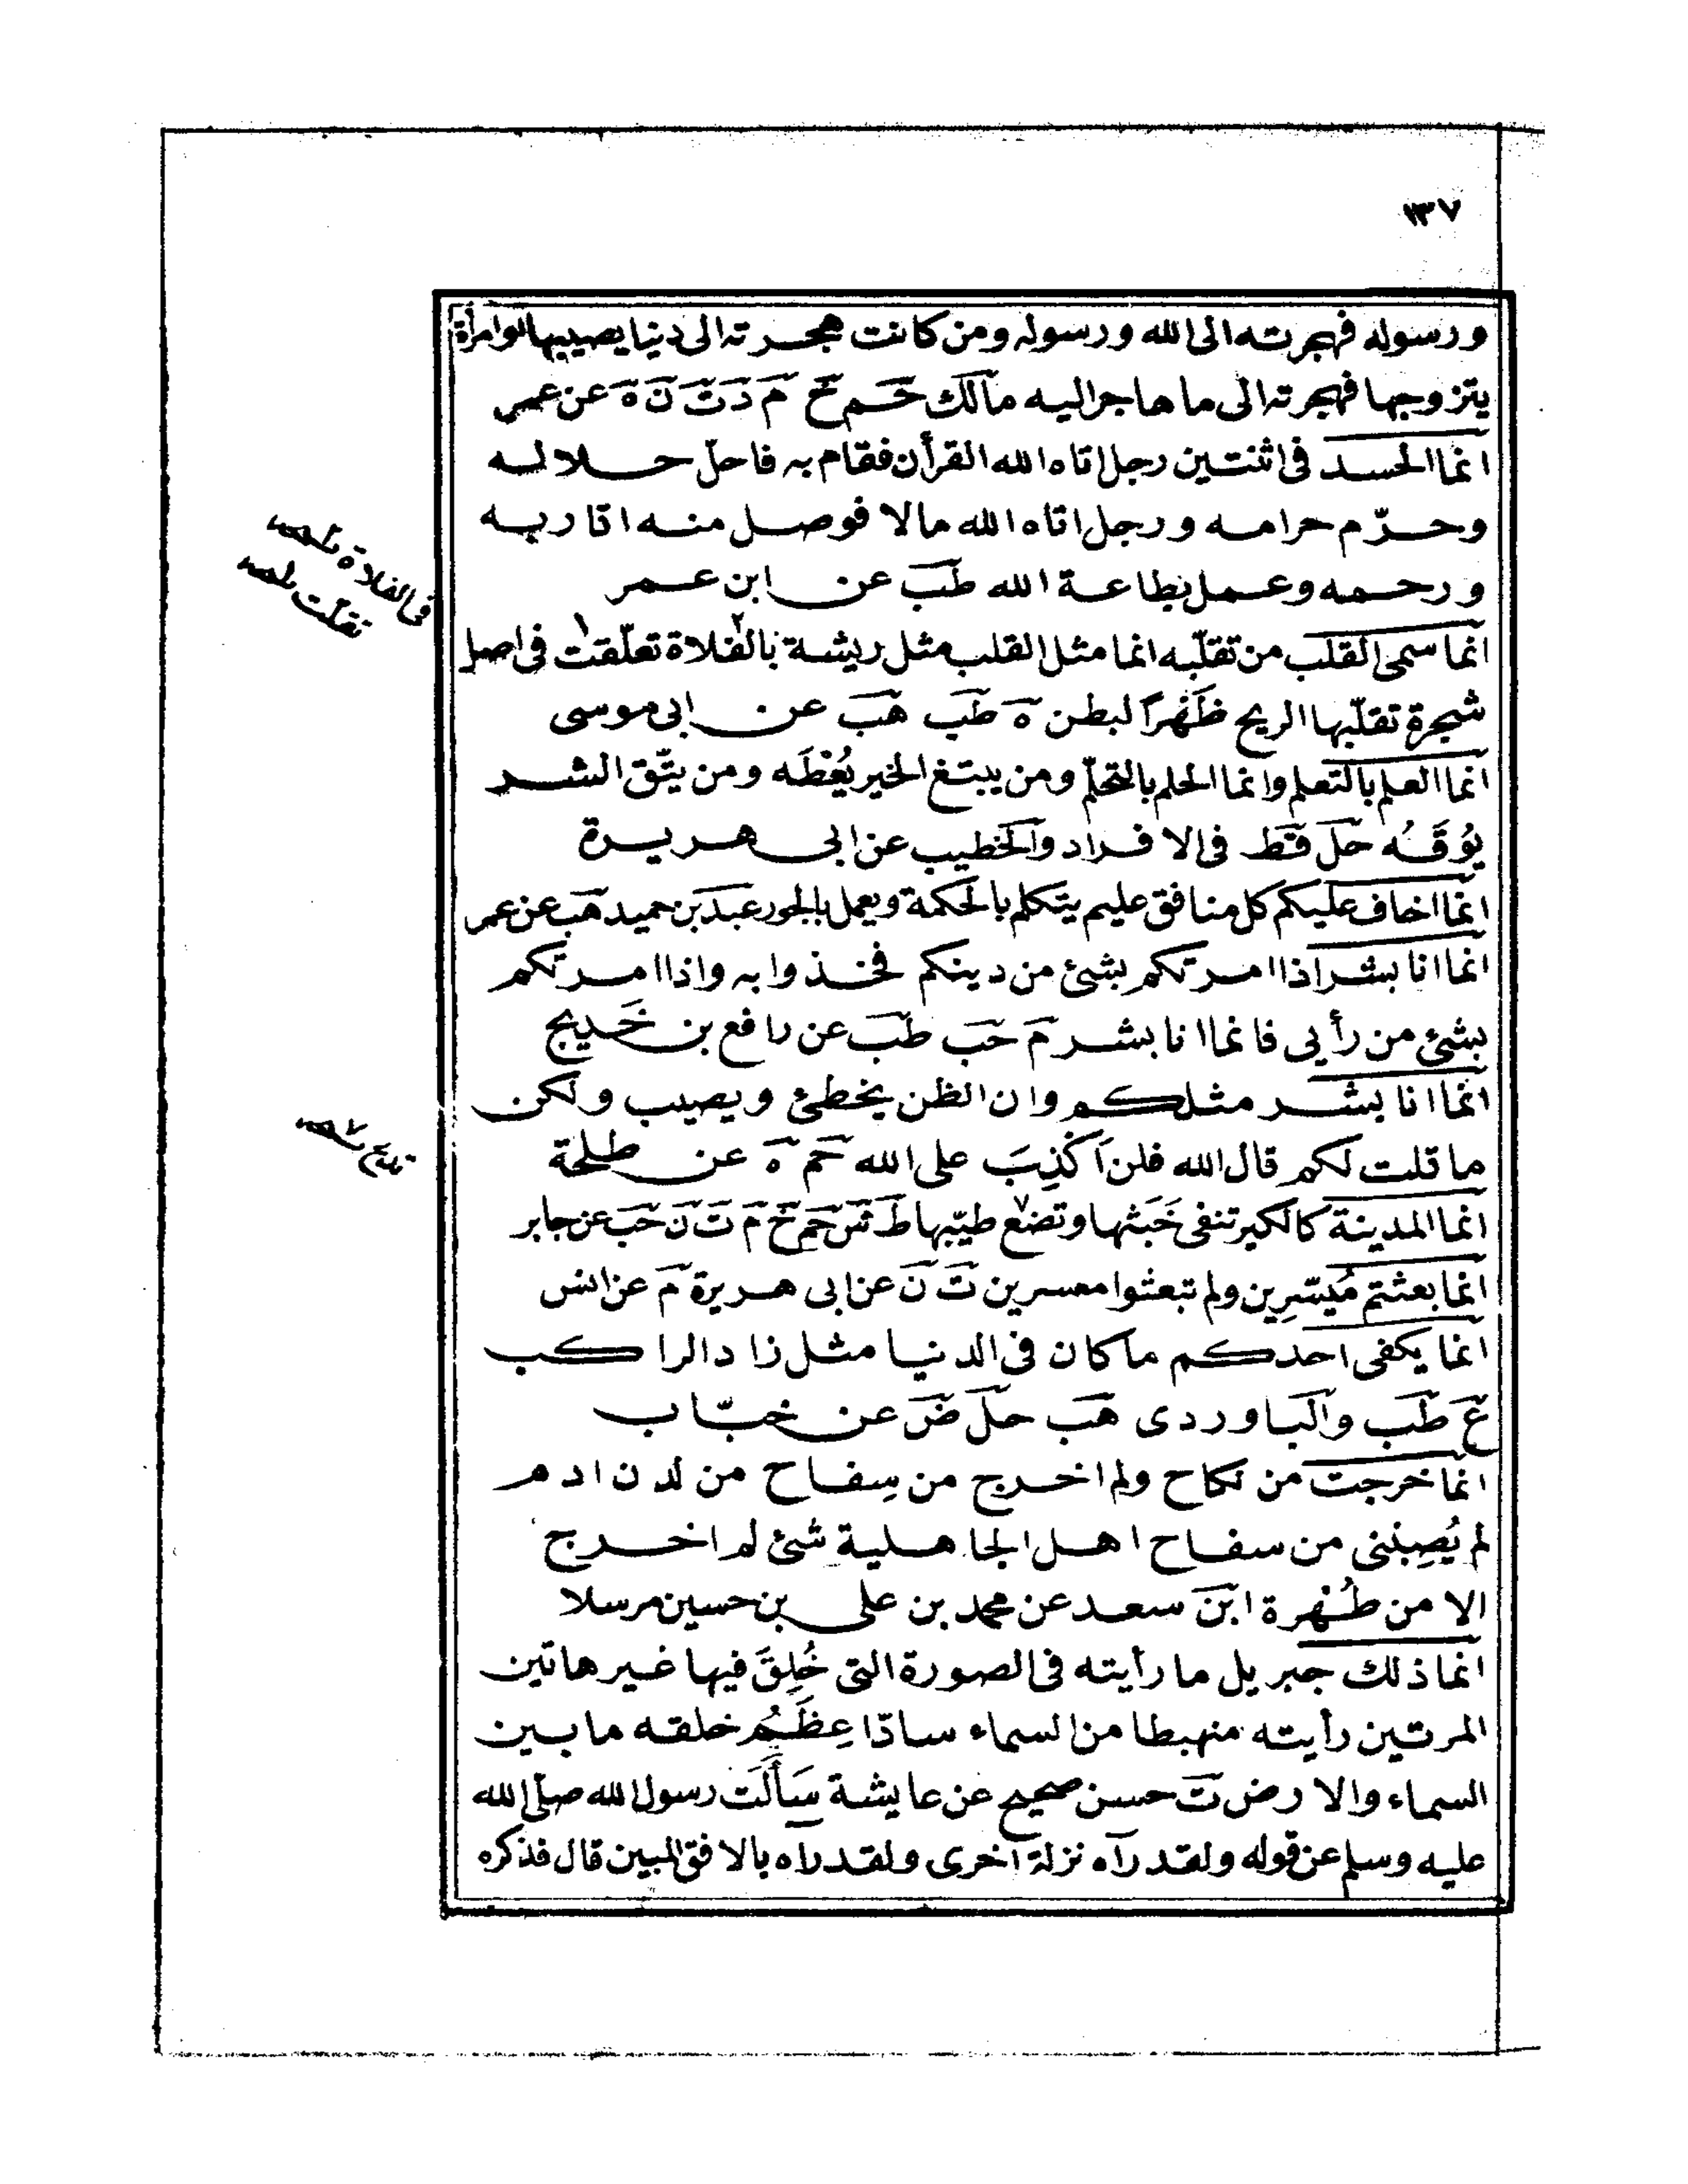 ١٣٧
ورسوله فهجرته الى الله ورسوله ومن كانت هجرته الى دنيا يصيبها او امرأة
يتزوجها فهجرته الى ما هاجر اليه مالك حم خ م د ت ن ه عن عمر
انما الحسد فى اثنتين رجل اتاه الله القرأن فقام به فاحلّ حلاله
وحرّم حرامه ورجل اتاه الله مالا فوصل منه اقاربه
ورحمه وعمل بطاعة الله طب عن ابن عمر
انما سمى القلب من تقلّبه انما مثل القلب مثل ريشة بالفلاة تعلّقت فى اصل
شجرة تقلّبها الريح ظَهْراً لبطن ه طب هب عن ابى موسى
انما العلم بالتعلم وانما الحلم بالتحلّم ومن يبتغ الخير يُعْطَه ومن يتّق الشر
يُوقَهُ حل قط فى الافراد والخطيب عن ابى هريرة
انما اخاف عليكم كل منافق عليم يتكلم بالحكمة ويعمل بالجور عبد بن حميد هب عن عمر
انما انا بشر اذا امرتكم بشئ من دينكم فخذوا به واذا امرتكم
بشئ من رأيى فانما انا بشر م حب طب عن رافع بن خَديج
انما انا بشر مثلكم وان الظن يخطئ ويصيب ولكن
ما قلت لكم قال الله فلن اَكْذِبَ على الله حم ه عن طلحة
انما المدينة كالكير تنفى خَبَثها وتضع طيّبها ط ش حم خ م ت ن حب عن جابر
انما بعثتم مُيَسّرِين ولم تبعثوا معسرين ت ن عن ابى هريرة م عن انس
انما يكفى احدكم ما كان فى الدنيا مثل زاد الراكب
ع طب والباوردى هب حل ض عن خبّاب
انما خرجت من نكاح ولم اخرج من سِفاح من لدن ادم
لم يُصِبْنى من سفاح اهل الجاهلية شئ لم اخرج
الا من طُهْرة ابن سعد عن محمد بن على بن حسين مرسلا
انما ذلك جبريل ما رأيته فى الصورة التى خُلِقَ فيها غير هاتين
المرتين رأيته منهبطا من السماء سادّا عِظَمُ خلقه ما بين
السماء والارض ت حسن صحيح عن عايشة سَأَلَت رسول الله صلّى الله
عليه وسلم عن قوله ولقد رآه نزلة اخرى ولقد راه بالافق المبين قال فذكره
فى الفلاة
تقلّت